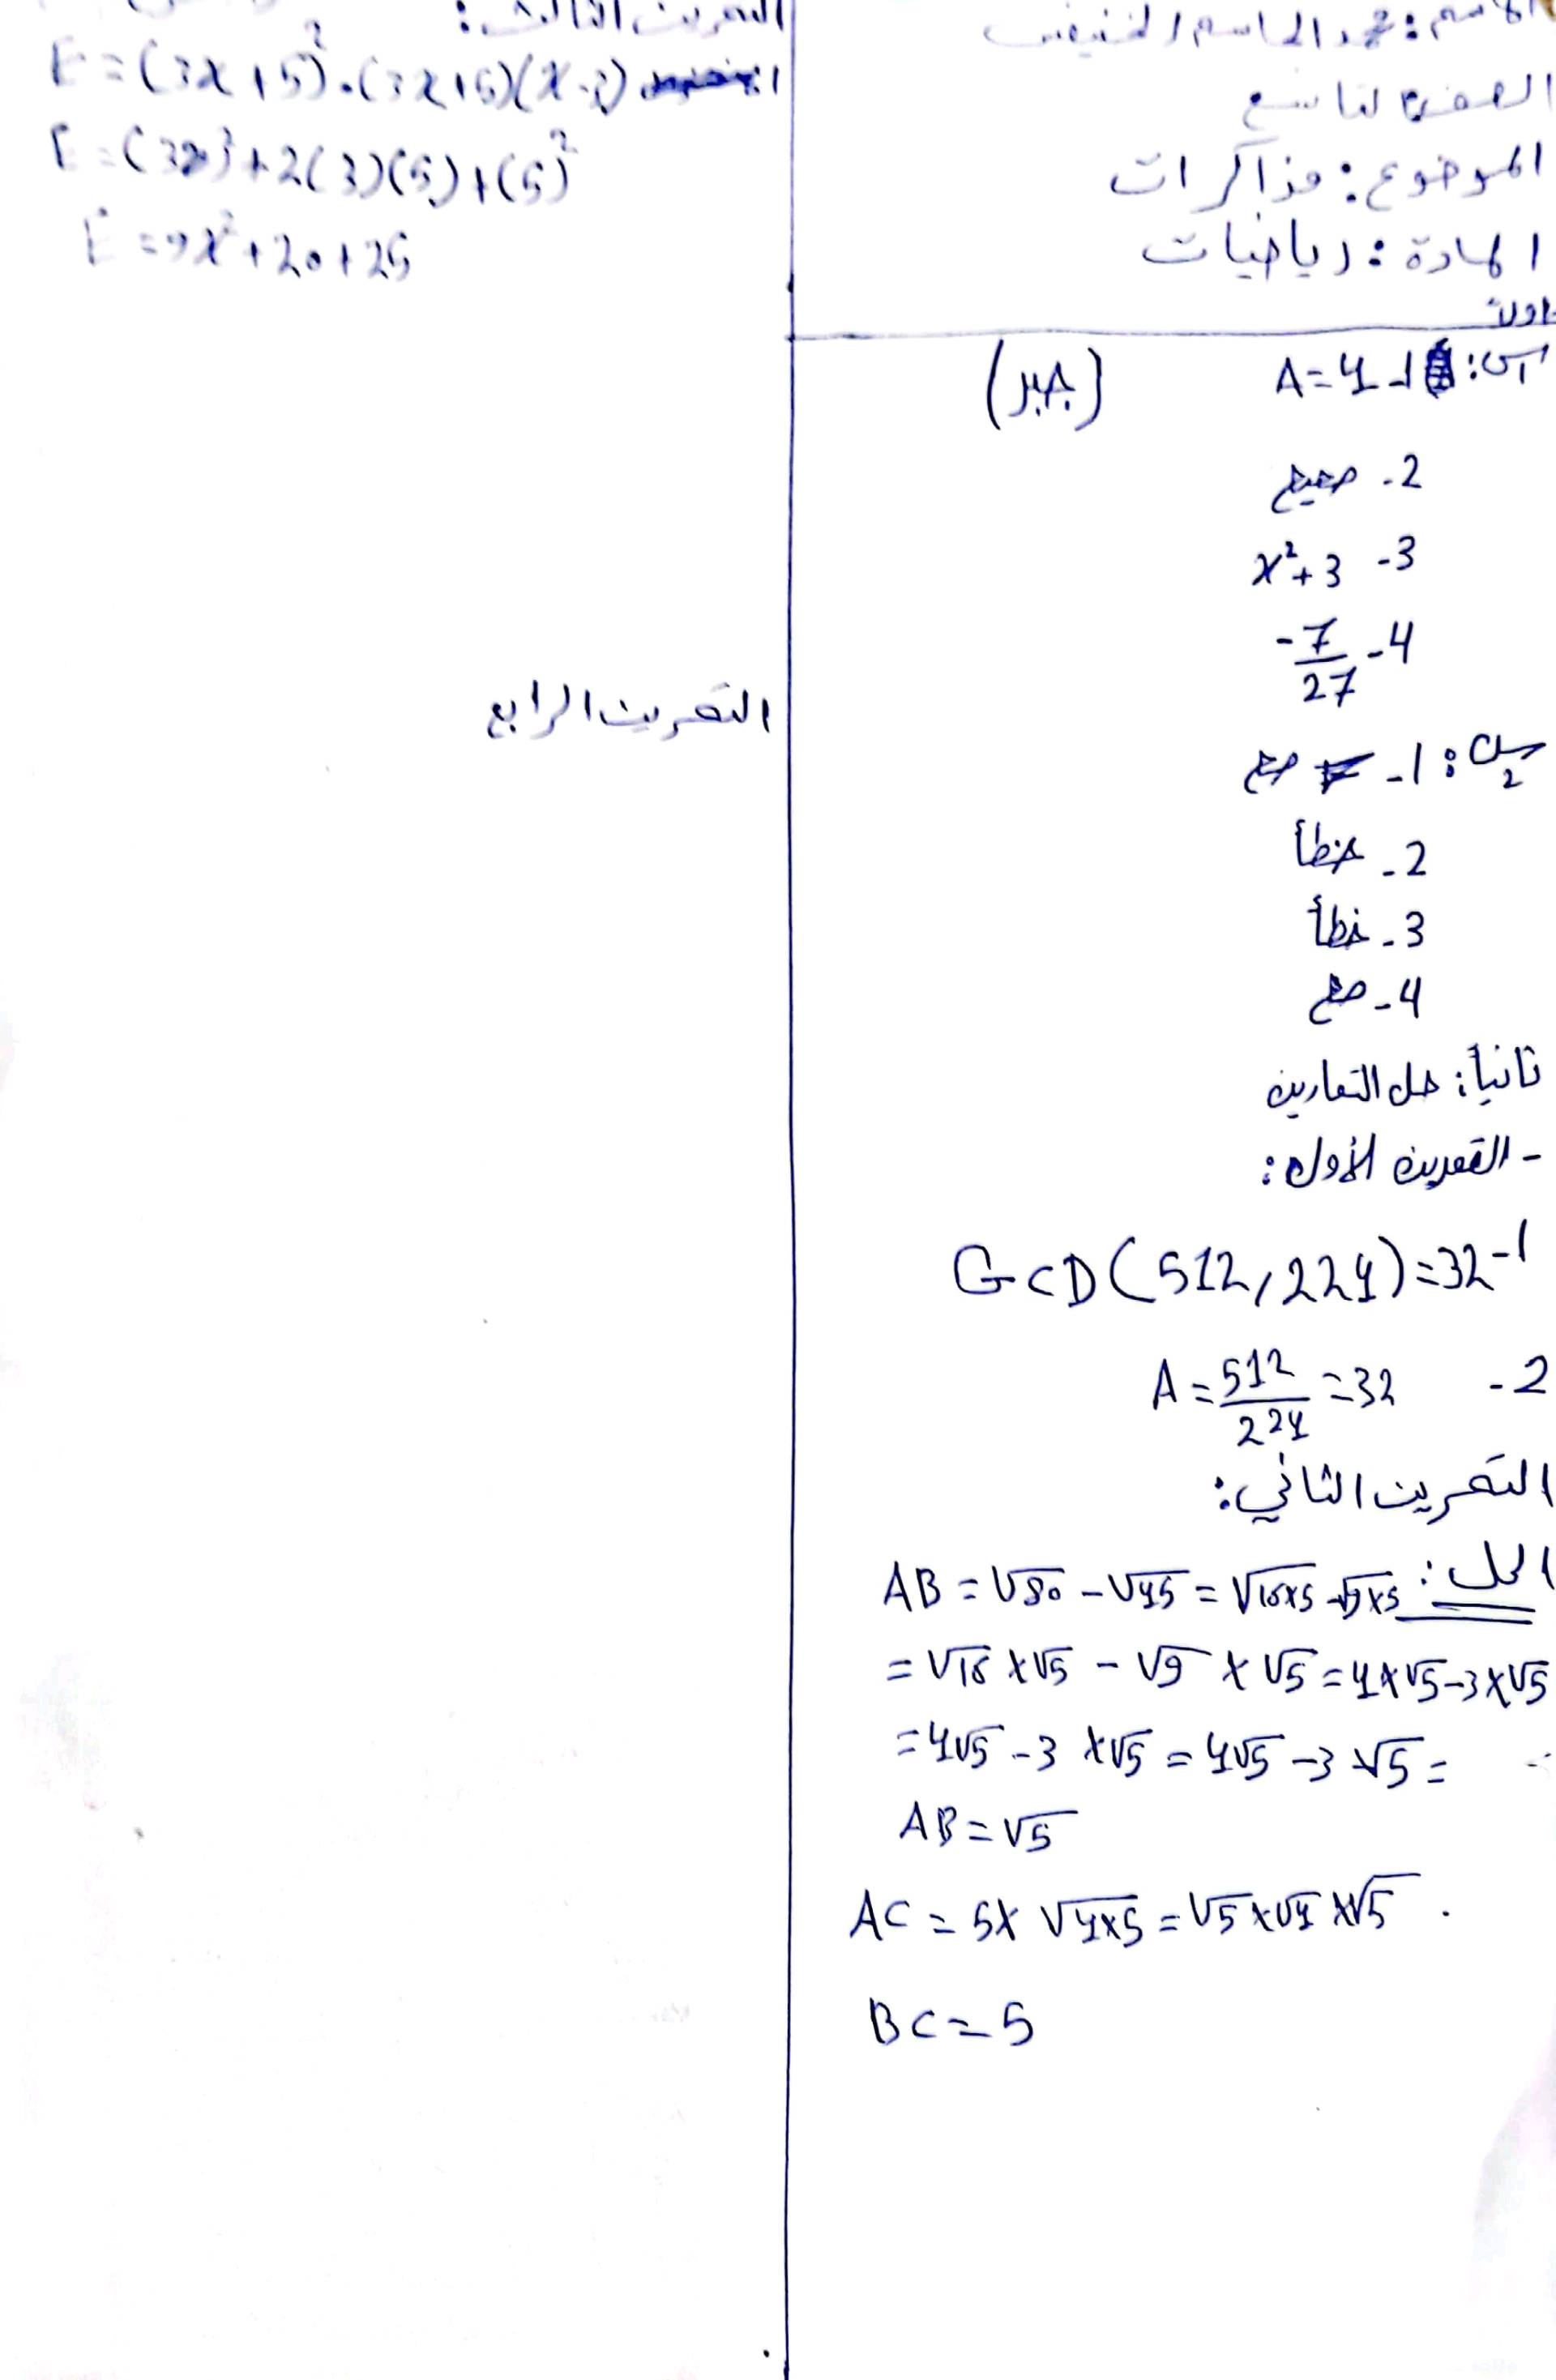 الاسم: محمد الجاسم الخنيفس
الصف: التاسع
الموضوع: مذاكرات
المادة: رياضيات
اولاً
س1: 1- A=4
(جبر)
2- صحيح
3- x²+3
4- -7/27
س2: 1- صح
2- خطأ
3- خطأ
4- صح
ثانياً: حل التمارين
- التمرين الأول:
1- GCD(512,224)=32
2- A=512/224=32
التمرين الثاني:
الحل: AB=√80-√45=√16×5-√9×5
=√16×√5-√9×√5=4×√5-3×√5
=4√5-3×√5=4√5-3√5=
AB=√5
AC=5×√4×5=√5×√4×√5
BC=5
التمرين الثالث:
E=(3x+5)².(3x+5)(x-2)
E=(3x)²+2(3)(5)+(5)²
E=9x²+20+25
التمرين الرابع